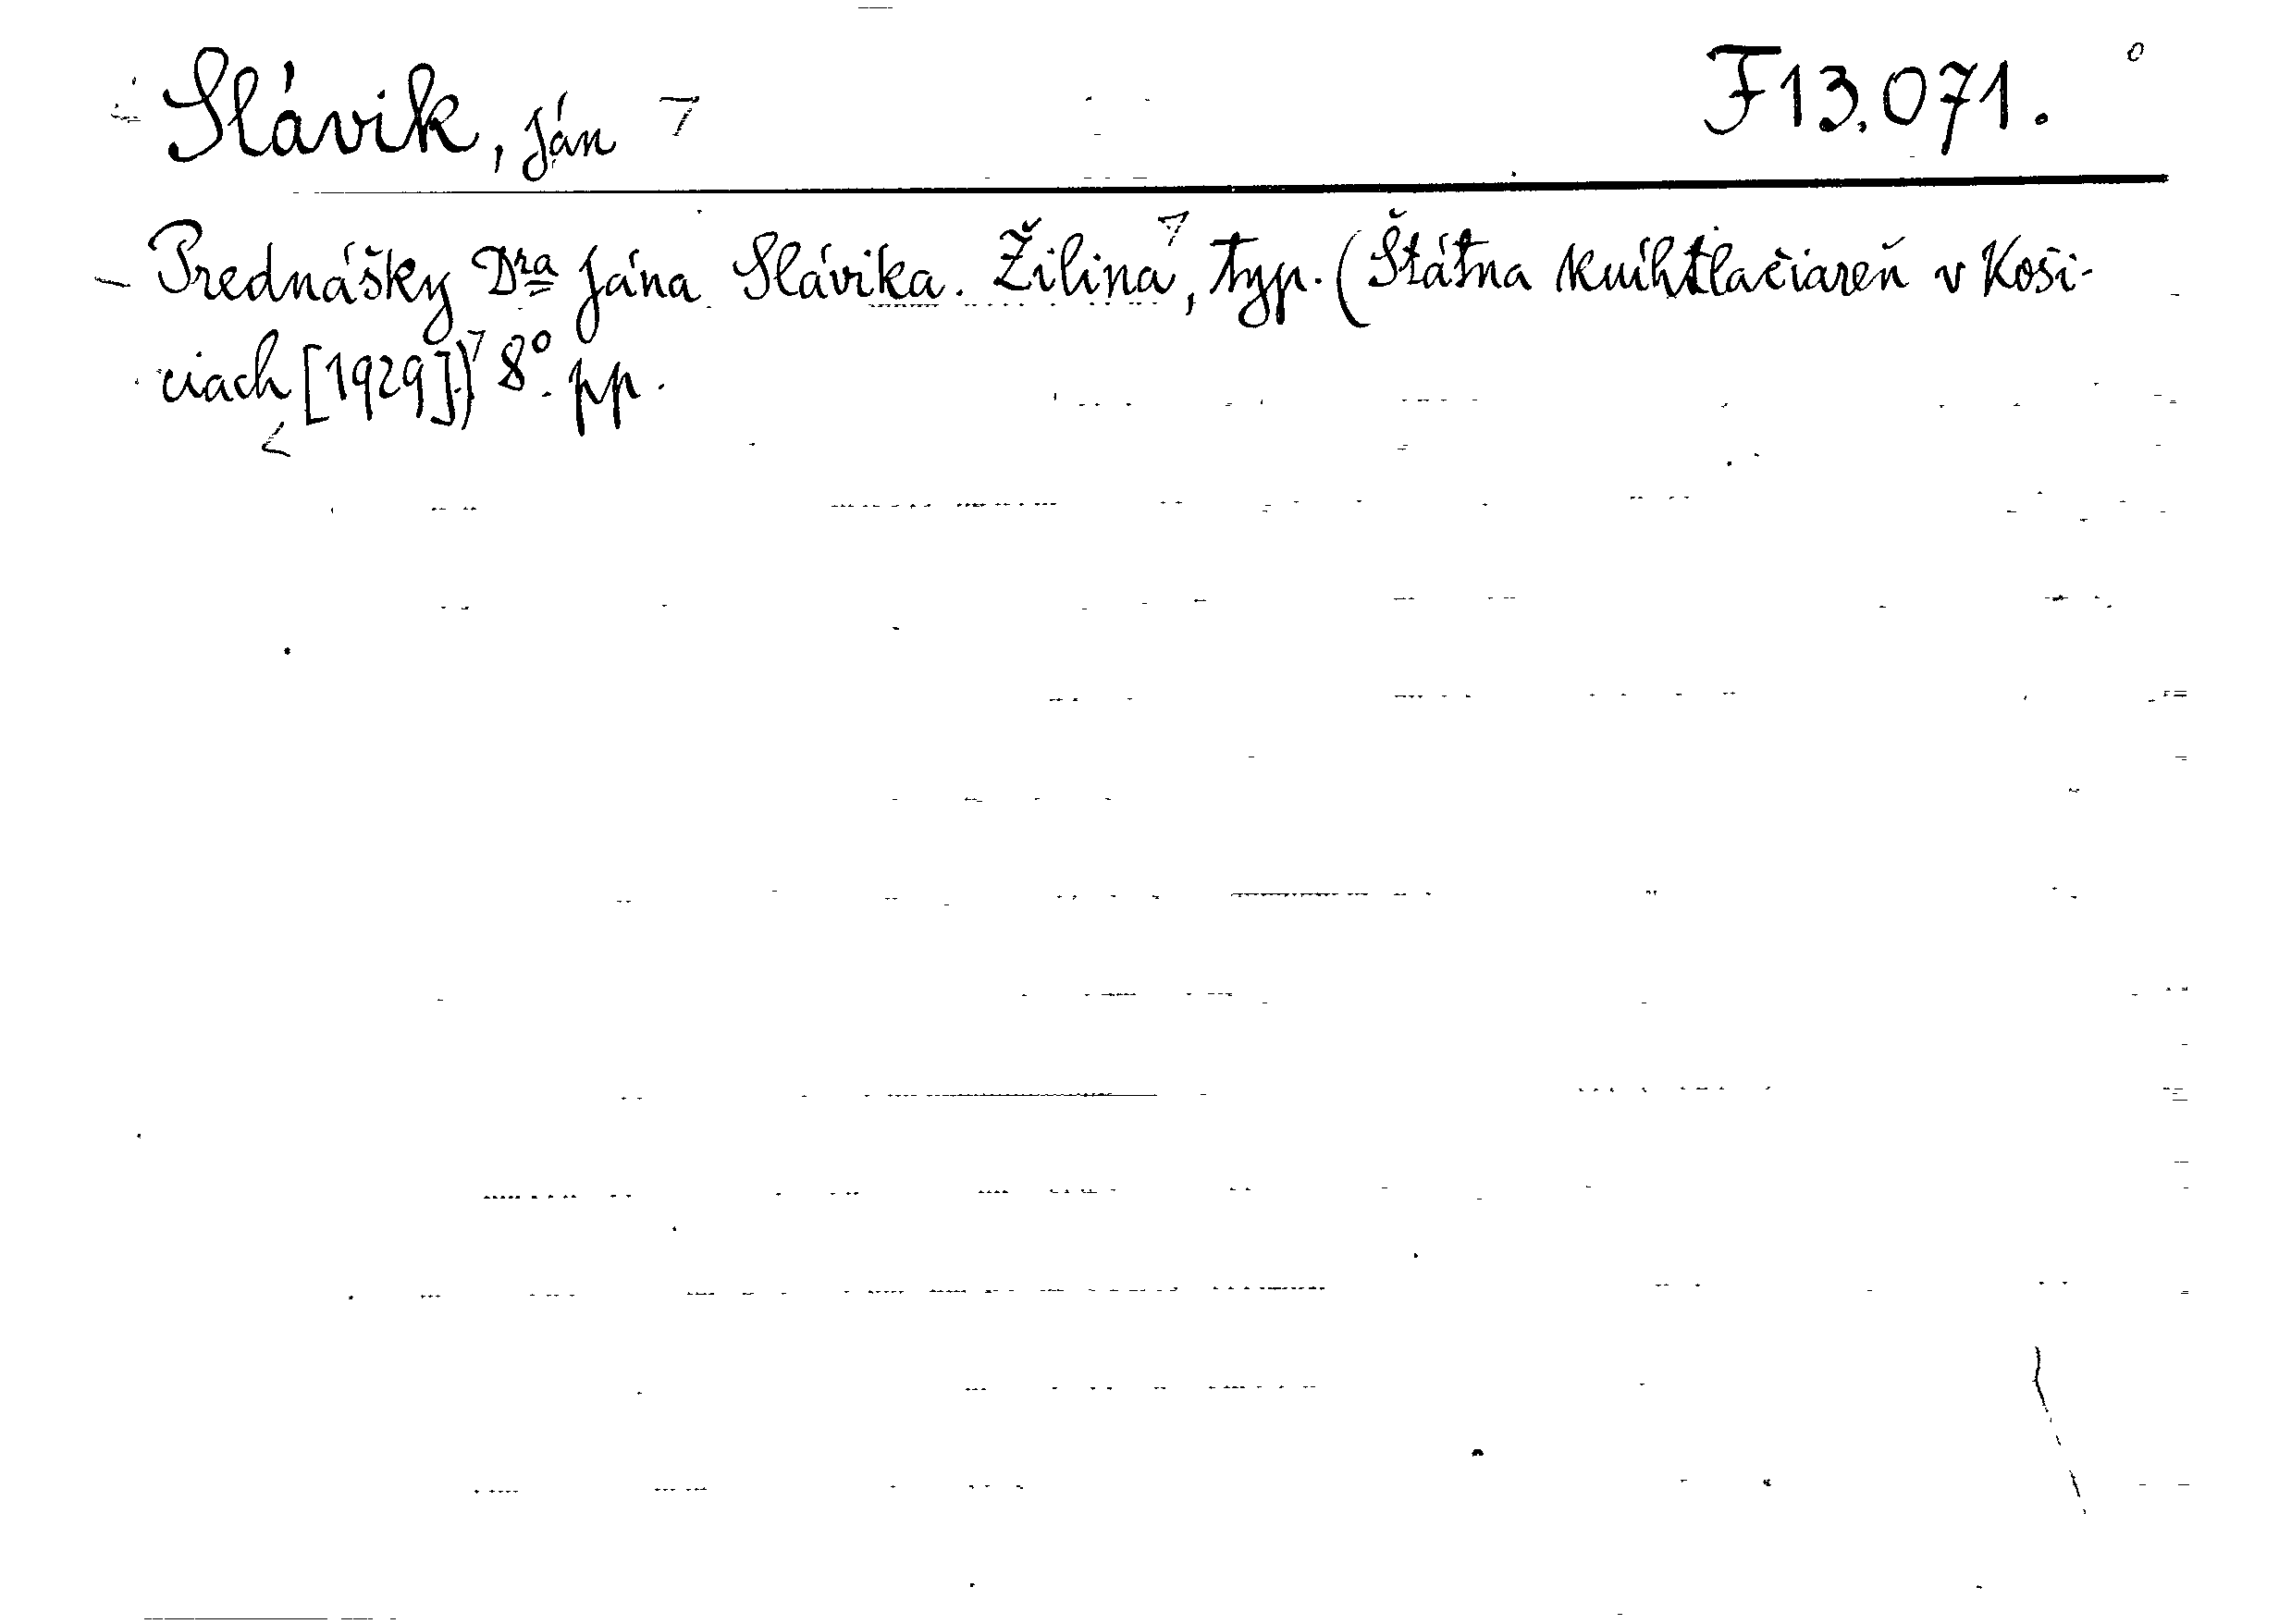 Slávik, Ján F13.071.
Prednášky Dra Jána Slávika. Žilina, typ. (Štátna kníhtlačiareň v Koši-
ciach [1929].) 8° pp.